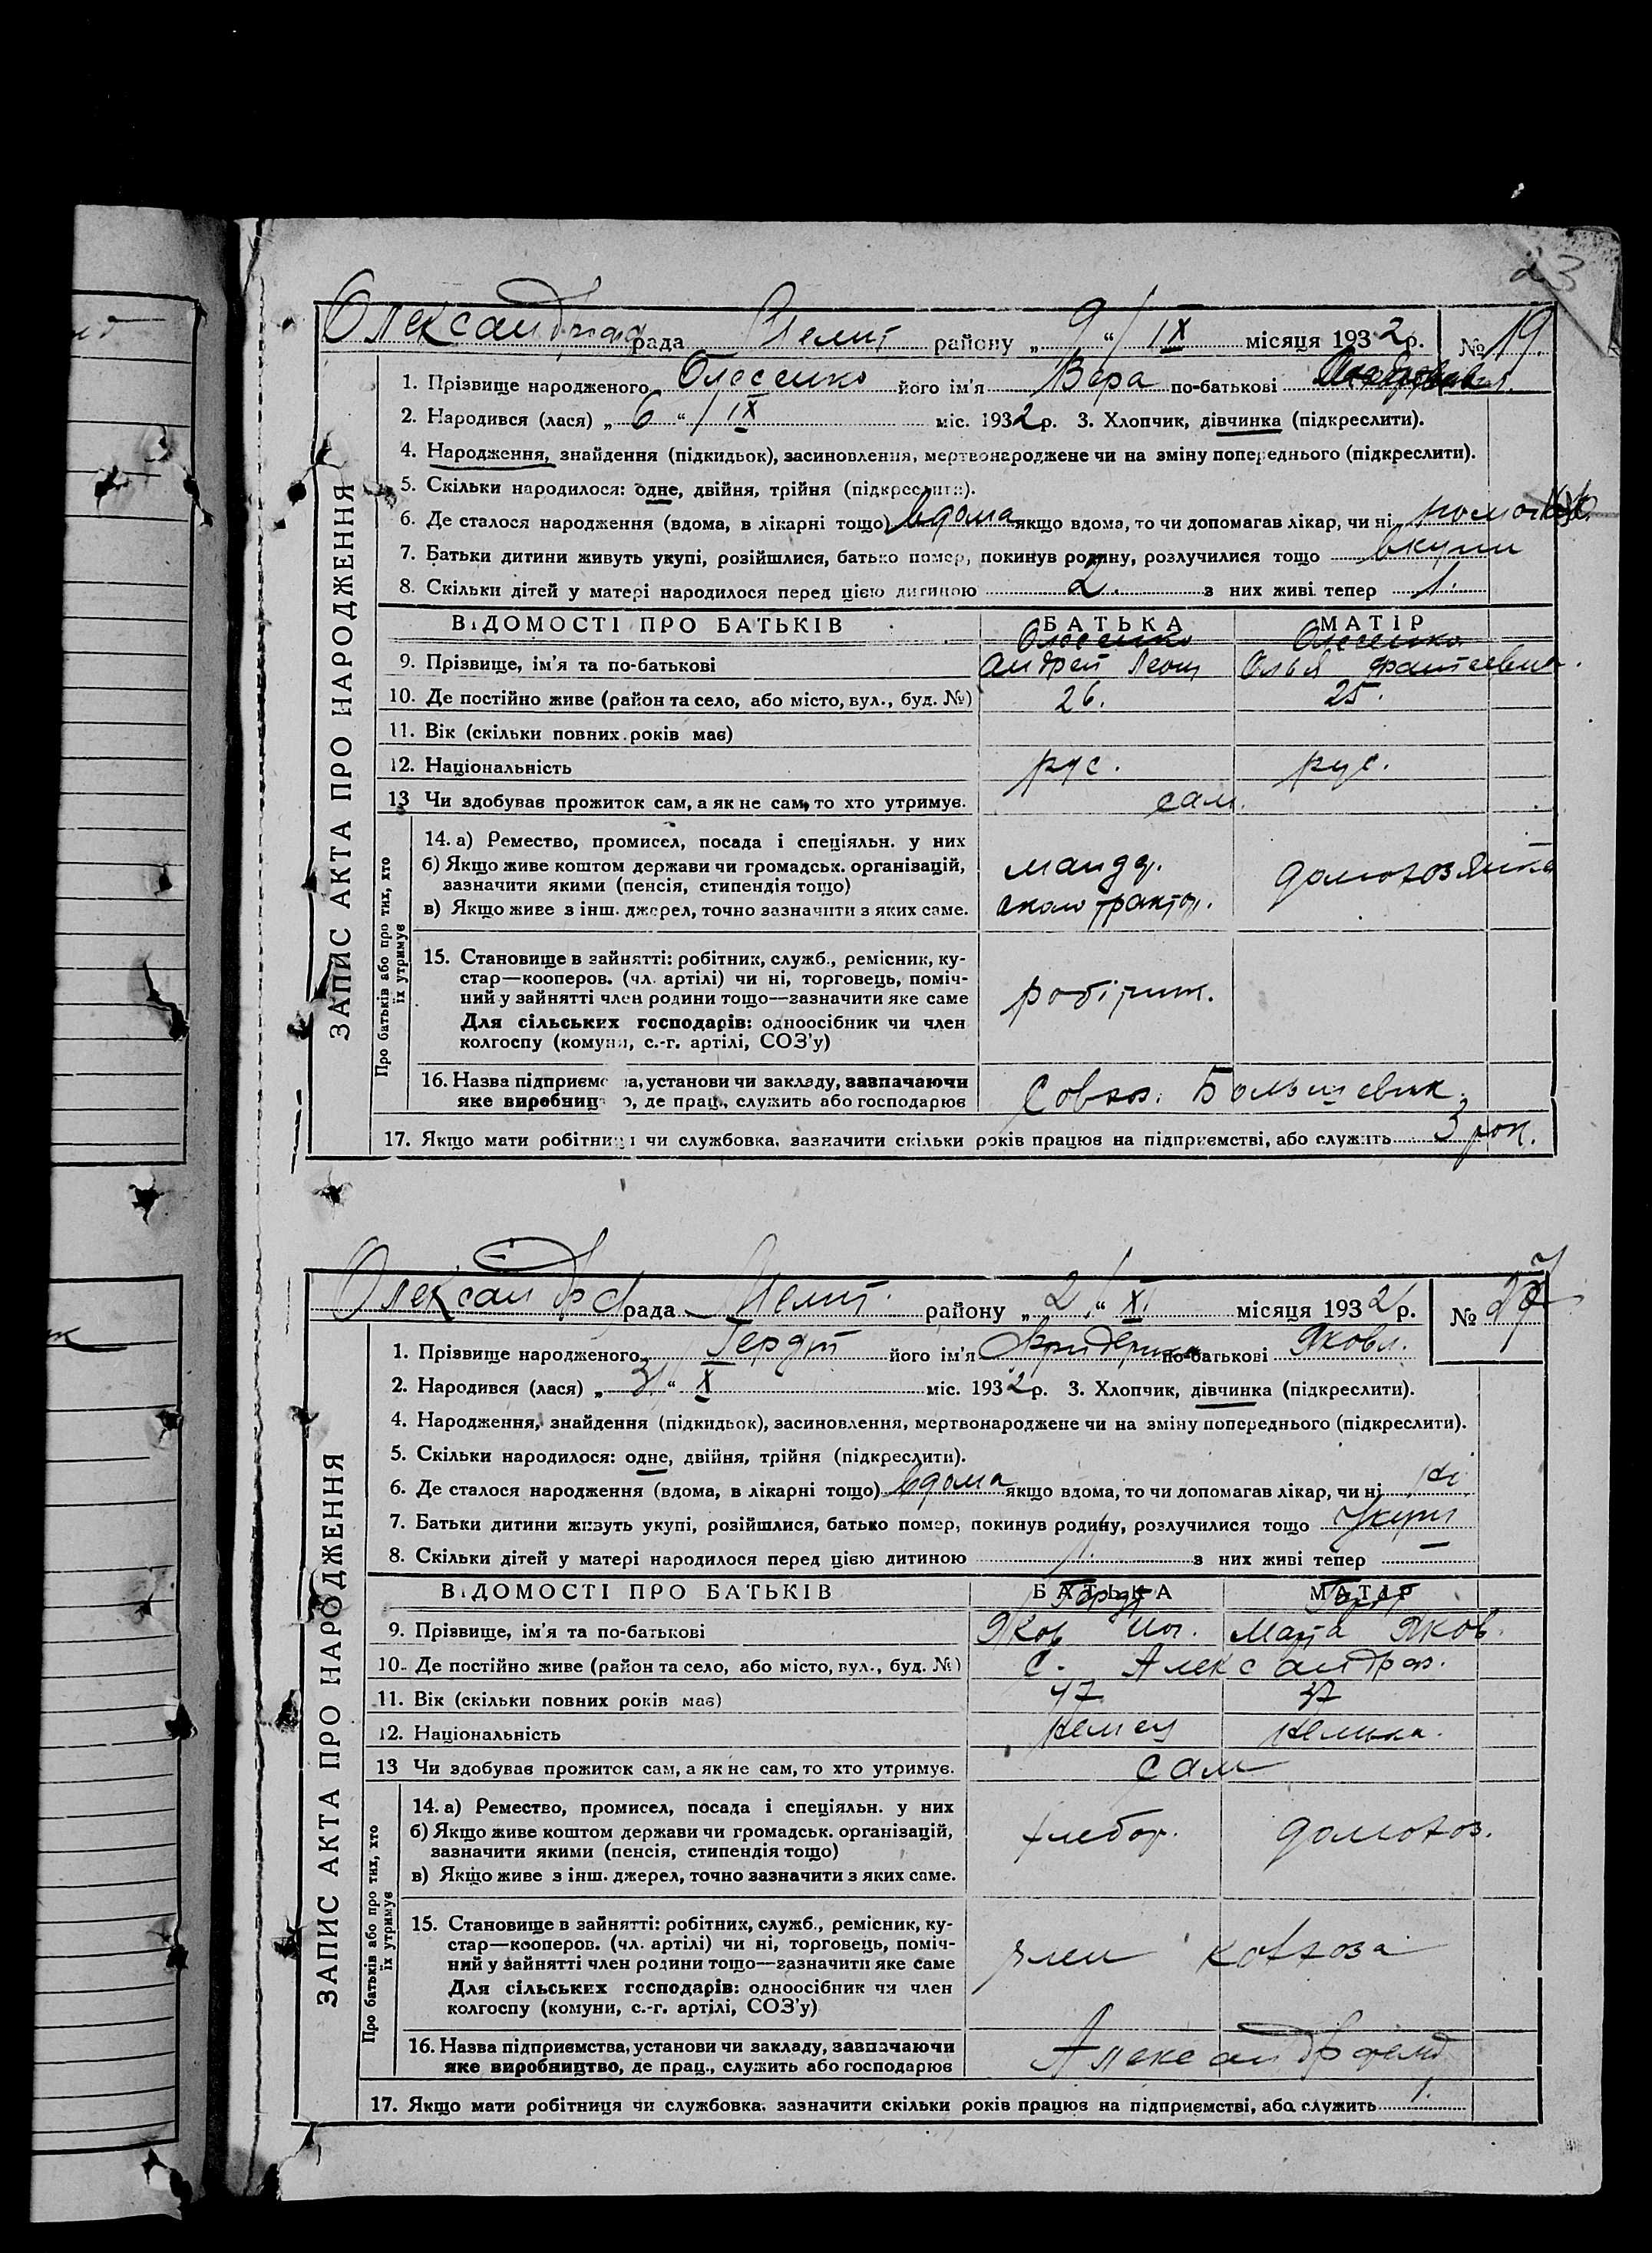 23
Олександр рада Мелит району „9“ IX місяця 1932 р. № 19
ЗАПИС АКТА ПРО НАРОДЖЕННЯ
1. Прізвище народженого його ім'я Вера по-батькові
2. Народився (лася) „6“ IX міс. 1932 р. 3. Хлопчик, дівчинка (підкреслити).
4. Народження, знайдення (підкидьок), засиновлення, мертвонароджене чи на зміну попереднього (підкреслити).
5. Скільки народилося: одне, двійня, трійня (підкреслити).
6. Де сталося народження (вдома, в лікарні тощо) вдома якщо вдома, то чи допомагав лікар, чи ні
7. Батьки дитини живуть укупі, розійшлися, батько помер, покинув родину, розлучилися тощо вкупи
8. Скільки дітей у матері народилося перед цією дитиною 2. з них живі тепер 1.
ВІДОМОСТІ ПРО БАТЬКІВ БАТЬКА МАТІР
9. Прізвище, ім'я та по-батькові Андрей Леон Ольга
10. Де постійно живе (район та село, або місто, вул., буд. №) 26. 25.
11. Вік (скільки повних років має)
12. Національність рус. рус.
13 Чи здобував прожиток сам, а як не сам, то хто утримує. сам.
Про батьків або про тих, хто їх утримує
14. а) Ремество, промисел, посада і спеціяльн. у них
б) Якщо живе коштом держави чи громадськ. організацій,
зазначити якими (пенсія, стипендія тощо) домохозяйка
в) Якщо живе з інш. джерел, точно зазначити з яких саме. трактор.
15. Становище в зайнятті: робітник, служб., ремісник, ку-
стар—кооперов. (чл. артілі) чи ні, торговець, поміч-
ний у зайнятті член родини тощо—зазначити яке саме робітник.
Для сільських господарів: одноосібник чи член
колгоспу (комуни, с.-г. артілі, СОЗ'у)
16. Назва підприємства, установи чи закладу, зазначаючи
яке виробництво, де прац., служить або господарює Совхоз. Большевик.
17. Якщо мати робітниця чи службовка, зазначити скільки років працює на підприємстві, або служить 3 рок.
Олександрф рада Мелит. району „2“ XI місяця 1932 р. № 27
ЗАПИС АКТА ПРО НАРОДЖЕННЯ
1. Прізвище народженого Гердт його ім'я Фридерика по-батькові Яковл.
2. Народився (лася) „31“ X міс. 1932 р. 3. Хлопчик, дівчинка (підкреслити).
4. Народження, знайдення (підкидьок), засиновлення, мертвонароджене чи на зміну попереднього (підкреслити).
5. Скільки народилося: одне, двійня, трійня (підкреслити).
6. Де сталося народження (вдома, в лікарні тощо) вдома якщо вдома, то чи допомагав лікар, чи ні ні
7. Батьки дитини живуть укупі, розійшлися, батько помер, покинув родину, розлучилися тощо Укупи
8. Скільки дітей у матері народилося перед цією дитиною 1. з них живі тепер —
ВІДОМОСТІ ПРО БАТЬКІВ БАТЬКА МАТІР
Гердт Гердт
9. Прізвище, ім'я та по-батькові Яков Мария Яков
10. Де постійно живе (район та село, або місто, вул., буд. №) с. Александрф.
11. Вік (скільки повних років має) 47 37
12. Національність немец немька.
13 Чи здобував прожиток сам, а як не сам, то хто утримує. сам
Про батьків або про тих, хто їх утримує
14. а) Ремество, промисел, посада і спеціяльн. у них
б) Якщо живе коштом держави чи громадськ. організацій,
зазначити якими (пенсія, стипендія тощо) хлебор. домохоз.
в) Якщо живе з інш. джерел, точно зазначити з яких саме.
15. Становище в зайнятті: робітник, служб., ремісник, ку-
стар—кооперов. (чл. артілі) чи ні, торговець, поміч-
ний у зайнятті член родини тощо—зазначити яке саме член колхоза
Для сільських господарів: одноосібник чи член
колгоспу (комуни, с.-г. артілі, СОЗ'у)
16. Назва підприємства, установи чи закладу, зазначаючи
яке виробництво, де прац., служить або господарює Александрфельд
17. Якщо мати робітниця чи службовка, зазначити скільки років працює на підприємстві, або служить 1.